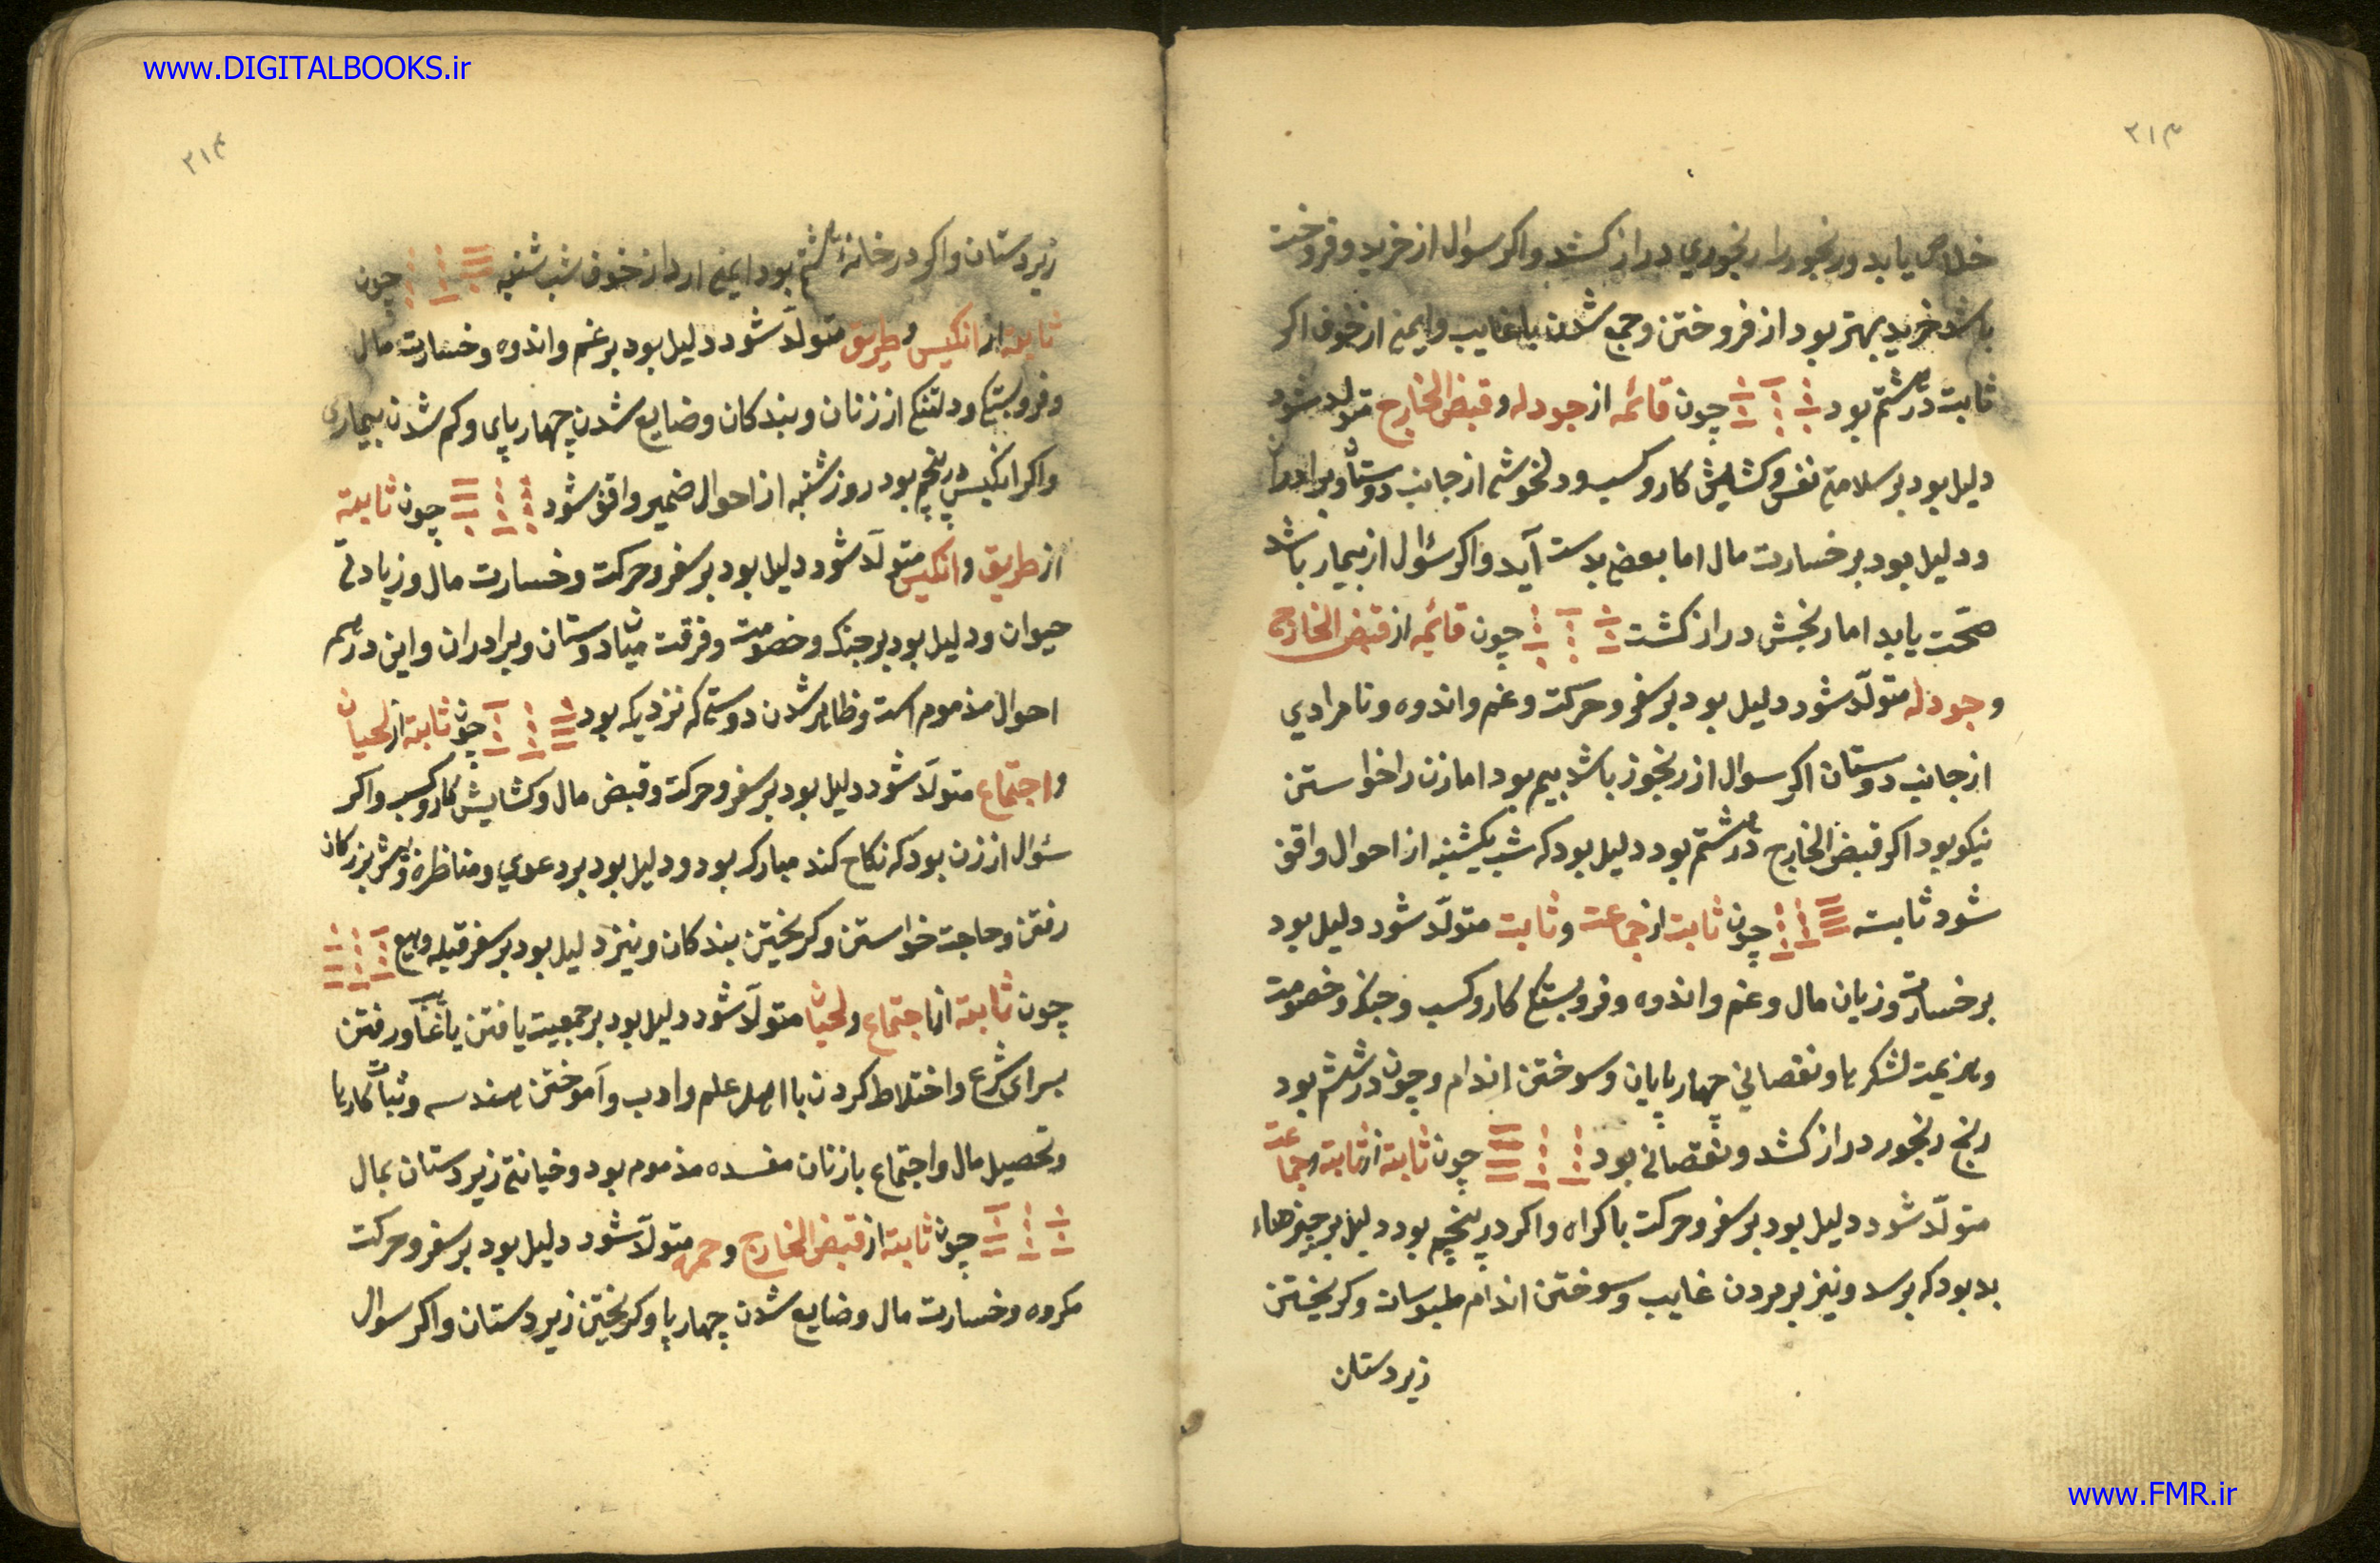 www.DIGITALBOOKS.ir
۳۱۳
خلاص یابد ورنجور را رنجوری دراز کشد واکر سوال از خرید وفروخت
باشد خرید بهتر بود از فروختن وجمع شدن با غایب وایمنی از خوف اکر
ثابت در هشتم بود چون قائمه از جودله وقبض الخارج متولد شود
دلیل بود بر سلامتی نفس وکشایش کار وکسب ودلخوشی از جانب دوستان وبرادران
ودلیل بود بر خسارت مال اما بعضی بدست آید واکر سؤال از بیمار باشد
صحّت یابد اما رنجش دراز کشت چون قائمه از قبض الخارج
وجودله متولّد شود دلیل بود بر سفر وحرکت وغم واندوه ونامرادی
از جانب دوستان اکر سوال از رنجور باشد بیم بود اما زن را خواستن
نیکو بود اکر قبض الخارج در هشتم بود دلیل بود که شب یکشنبه از احوال واقف
شود ثابته چون ثابت از جماعت وثابت متولّد شود دلیل بود
بر خسارت وزیان مال وغم واندوه وفروبستگی کار وکسب وجنک وخصومت
وهزیمت لشکرها ونقصانی چهارپایان وسوختن اندام وچون در ششم بود
رنج رنجور دراز کشد ونقصانی بود چون ثابته از ثابته وجماعت
متولّد شود دلیل بود بر سفر وحرکت باکراه واکر در پنجم بود دلیل بر چیزهاء
بد بود که برسد ونیز بر مردن غایب وسوختن اندام ملبوسات وکریختن
زیردستان
۳۱۴
زیردستان واکر در خانهٔ هشتم بود ایمنی ارد از خوف شب شنبه چون
ثابته از انکیس وطریق متولّد شود دلیل بود بر غم واندوه وخسارت مال
وفروبستگی ودلتنگی از زنان وبندکان وضایع شدن چهارپای وکم شدن بیماری
واکر انکیس در پنجم بود روز شنبه از احوال ضمیر واقف شود چون ثابته
از طریق وانکیس متولّد شود دلیل بود بر سفر وحرکت وخسارت مال وزیادتی
حیوان ودلیل بود بر جنک وخصومت وفرقت میان دوستان وبرادران واین در همه
احوال مذموم است وظاهر شدن دوستی که نزدیک بود چون ثابته از لحیان
واجتماع متولّد شود دلیل بود بر سفر وحرکت وقبض مال وکشایش کار وکسب واکر
سئوال از زن بود که نکاح کند مبارک بود ودلیل بود بر دعوی ومناظره وپیش بزرکان
رفتن وحاجت خواستن وکریختن بندکان ونیز دلیل بود بر سفر قبله وبیع
چون ثابته از اجتماع ولحیان متولّد شود دلیل بود بر جمعیت یافتن یا غایب ورفتن
بسرای شرع واختلاط کردن با اهل علم وادب وآموختن هندسه وثبات کارها
وتحصیل مال واجتماع با زنان مفسده مذموم بود وخیانتی زیردستان بمال
چون ثابته از قبض الخارج وحمره متولّد شود دلیل بود بر سفر وحرکت
مکروه وخسارت مال وضایع شدن چهارپا وکریختن زیردستان واکر سوال
www.FMR.ir